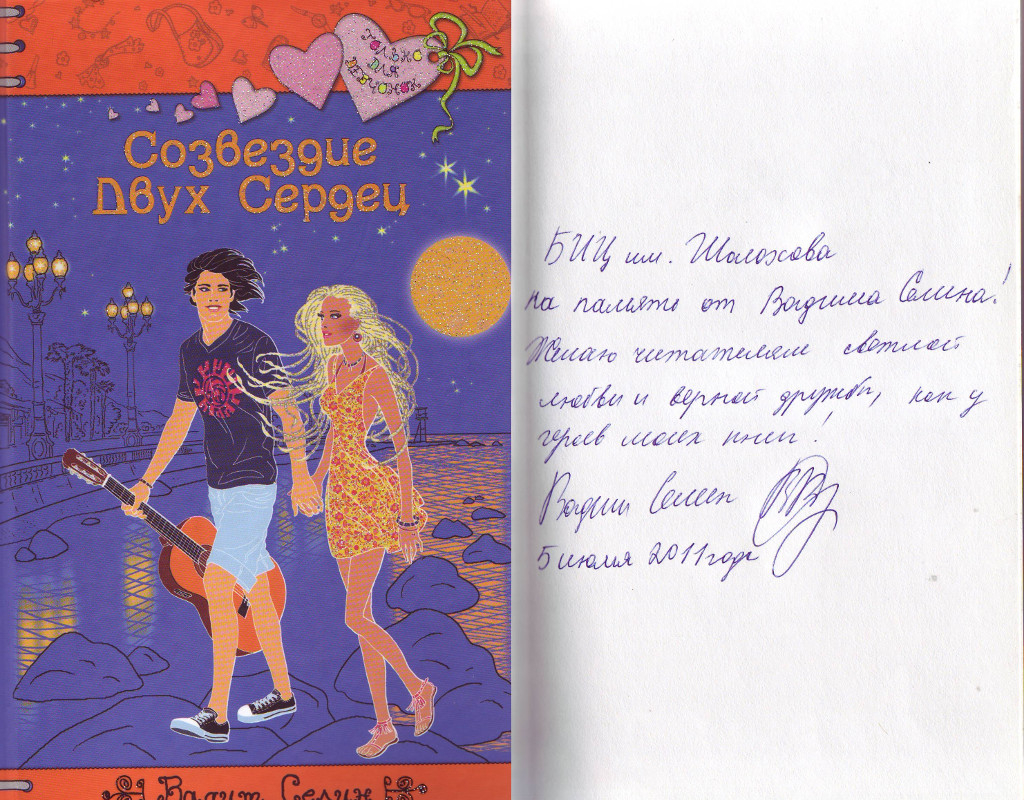 Только
для
девчонок
Созвездие
Двух Сердец
Вадим Селин
БИЦ им. Шолохова
на память от Вадима Селина!
Желаю читателям светлой
любви и верной дружбы, как у
героев моих книг!
Вадим Селин
5 июля 2011 года